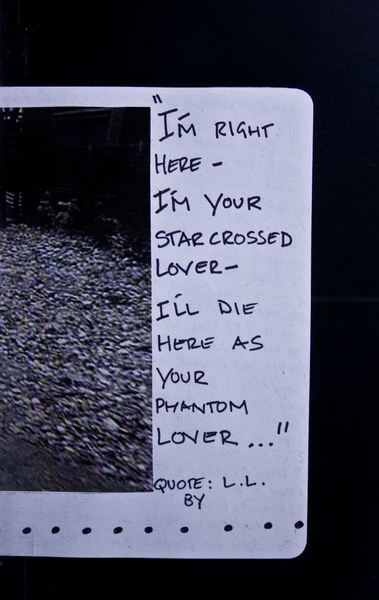 "I'M RIGHT
HERE -
I'M YOUR
STARCROSSED
LOVER -
I'LL DIE
HERE AS
YOUR
PHANTOM
LOVER ..."
QUOTE: L.L.
BY